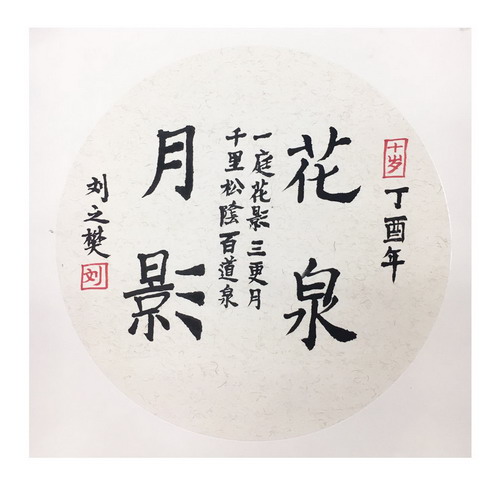 十岁
丁酉年
花泉
一庭花影三更月
千里松陰百道泉
月影
刘之樊
刘